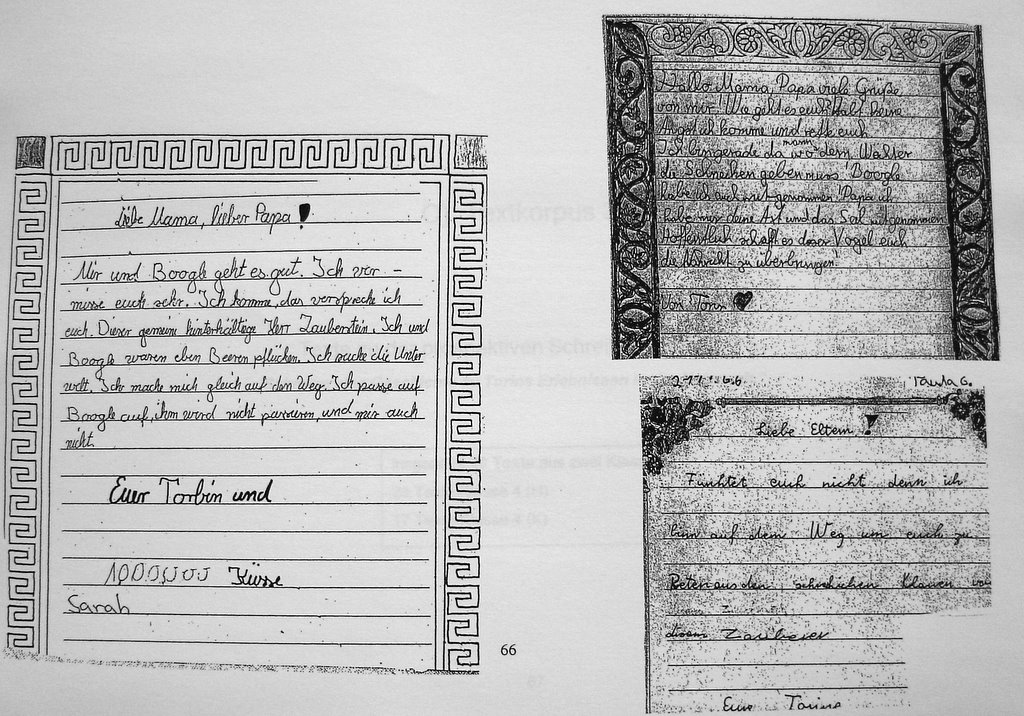 Liebe Mama, lieber Papa!
Mir und Boogle geht es gut. Ich ver-
misse euch sehr. Ich komme, das verspreche ich
euch. Dieser gemeine hinterhältige Herr Zauberstein. Ich und
Boogle waren eben Beeren pflücken. Ich suche die Unter
welt. Ich mache mich gleich auf den Weg. Ich passe auf
Boogle auf, ihm wird nicht passiren, und mir auch
nicht.
Euer Torbin und
1000000 Küsse
Sarah
66
Hallo Mama, Papa viele Grüße
von mir! Wie geht es euch? Habt keine
Angst ich komme und rette euch
Ich bin gerade da wo dem Walter
mann
die Schneihen geben muss! Boogle
habe ich auch mit genommen! Papa ich
habe mir deine Axt und das Seil mitgenommen
Hoffentlich schaft es dieser Vogel euch
die Nachricht zu überbringen!
Von
Paula G.
Liebe Eltern,!
Fürchtet euch nicht denn ich
bin auf dem Weg um euch zu
Reten aus den schrecklichen Klauen
diesem Zauberer
Eure Torina